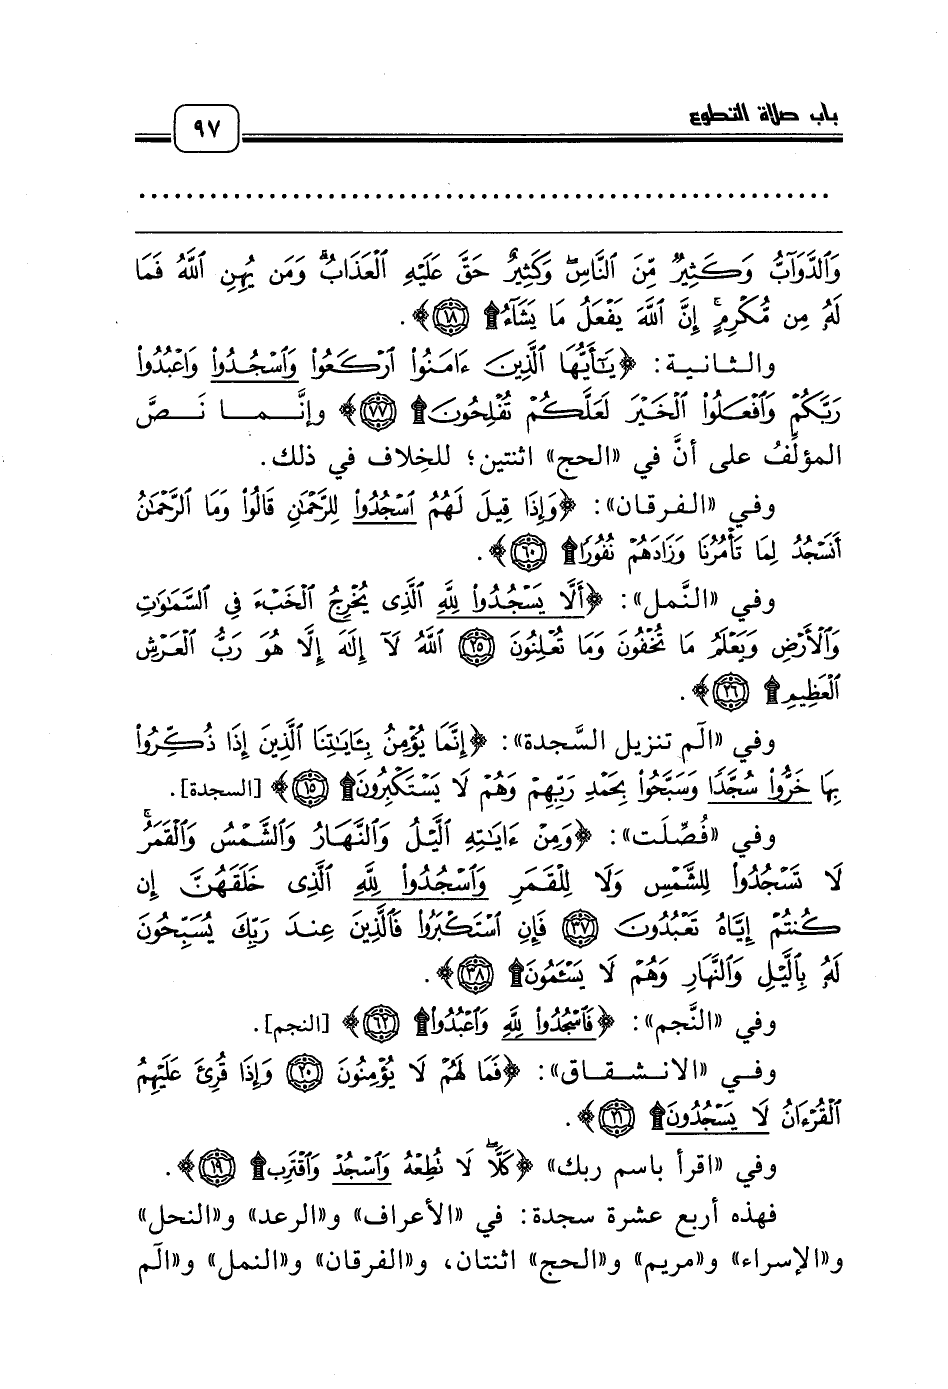 باب صلاة التطوع
٩٧
وَٱلدَّوَآبُّ وَكَثِيرٌ مِّنَ ٱلنَّاسِ ۖ وَكَثِيرٌ حَقَّ عَلَيْهِ ٱلْعَذَابُ ۗ وَمَن يُهِنِ ٱللَّهُ فَمَا
لَهُۥ مِن مُّكْرِمٍ ۚ إِنَّ ٱللَّهَ يَفْعَلُ مَا يَشَآءُ ۩ ١٨﴾.
والثانية: ﴿يَٰٓأَيُّهَا ٱلَّذِينَ ءَامَنُوا۟ ٱرْكَعُوا۟ وَٱسْجُدُوا۟ وَٱعْبُدُوا۟
رَبَّكُمْ وَٱفْعَلُوا۟ ٱلْخَيْرَ لَعَلَّكُمْ تُفْلِحُونَ ۩ ٧٧﴾ وإنَّما نَصَّ
المؤلِّفُ على أنَّ في «الحج» اثنتين؛ للخِلاف في ذلك.
وفي «الفرقان»: ﴿وَإِذَا قِيلَ لَهُمُ ٱسْجُدُوا۟ لِلرَّحْمَٰنِ قَالُوا۟ وَمَا ٱلرَّحْمَٰنُ
أَنَسْجُدُ لِمَا تَأْمُرُنَا وَزَادَهُمْ نُفُورًا ۩ ٦٠﴾.
وفي «النَّمل»: ﴿أَلَّا يَسْجُدُوا۟ لِلَّهِ ٱلَّذِى يُخْرِجُ ٱلْخَبْءَ فِى ٱلسَّمَٰوَٰتِ
وَٱلْأَرْضِ وَيَعْلَمُ مَا تُخْفُونَ وَمَا تُعْلِنُونَ ٢٥ ٱللَّهُ لَآ إِلَٰهَ إِلَّا هُوَ رَبُّ ٱلْعَرْشِ
ٱلْعَظِيمِ ۩ ٢٦﴾.
وفي «الٓم تنزيل السَّجدة»: ﴿إِنَّمَا يُؤْمِنُ بِـَٔايَٰتِنَا ٱلَّذِينَ إِذَا ذُكِّرُوا۟
بِهَا خَرُّوا۟ سُجَّدًا وَسَبَّحُوا۟ بِحَمْدِ رَبِّهِمْ وَهُمْ لَا يَسْتَكْبِرُونَ ۩ ١٥﴾ [السجدة].
وفي «فُصِّلت»: ﴿وَمِنْ ءَايَٰتِهِ ٱلَّيْلُ وَٱلنَّهَارُ وَٱلشَّمْسُ وَٱلْقَمَرُ ۚ
لَا تَسْجُدُوا۟ لِلشَّمْسِ وَلَا لِلْقَمَرِ وَٱسْجُدُوا۟ لِلَّهِ ٱلَّذِى خَلَقَهُنَّ إِن
كُنتُمْ إِيَّاهُ تَعْبُدُونَ ٣٧ فَإِنِ ٱسْتَكْبَرُوا۟ فَٱلَّذِينَ عِندَ رَبِّكَ يُسَبِّحُونَ
لَهُۥ بِٱلَّيْلِ وَٱلنَّهَارِ وَهُمْ لَا يَسْـَٔمُونَ ۩ ٣٨﴾.
وفي «النَّجم»: ﴿فَٱسْجُدُوا۟ لِلَّهِ وَٱعْبُدُوا۟ ۩ ٦٢﴾ [النجم].
وفي «الانشقاق»: ﴿فَمَا لَهُمْ لَا يُؤْمِنُونَ ٢٠ وَإِذَا قُرِئَ عَلَيْهِمُ
ٱلْقُرْءَانُ لَا يَسْجُدُونَ ۩ ٢١﴾.
وفي «اقرأ باسم ربك» ﴿كَلَّا لَا تُطِعْهُ وَٱسْجُدْ وَٱقْتَرِب ۩ ١٩﴾.
فهذه أربع عشرة سجدة: في «الأعراف» و«الرعد» و«النحل»
و«الإسراء» و«مريم» و«الحج» اثنتان، و«الفرقان» و«النمل» و«الٓم